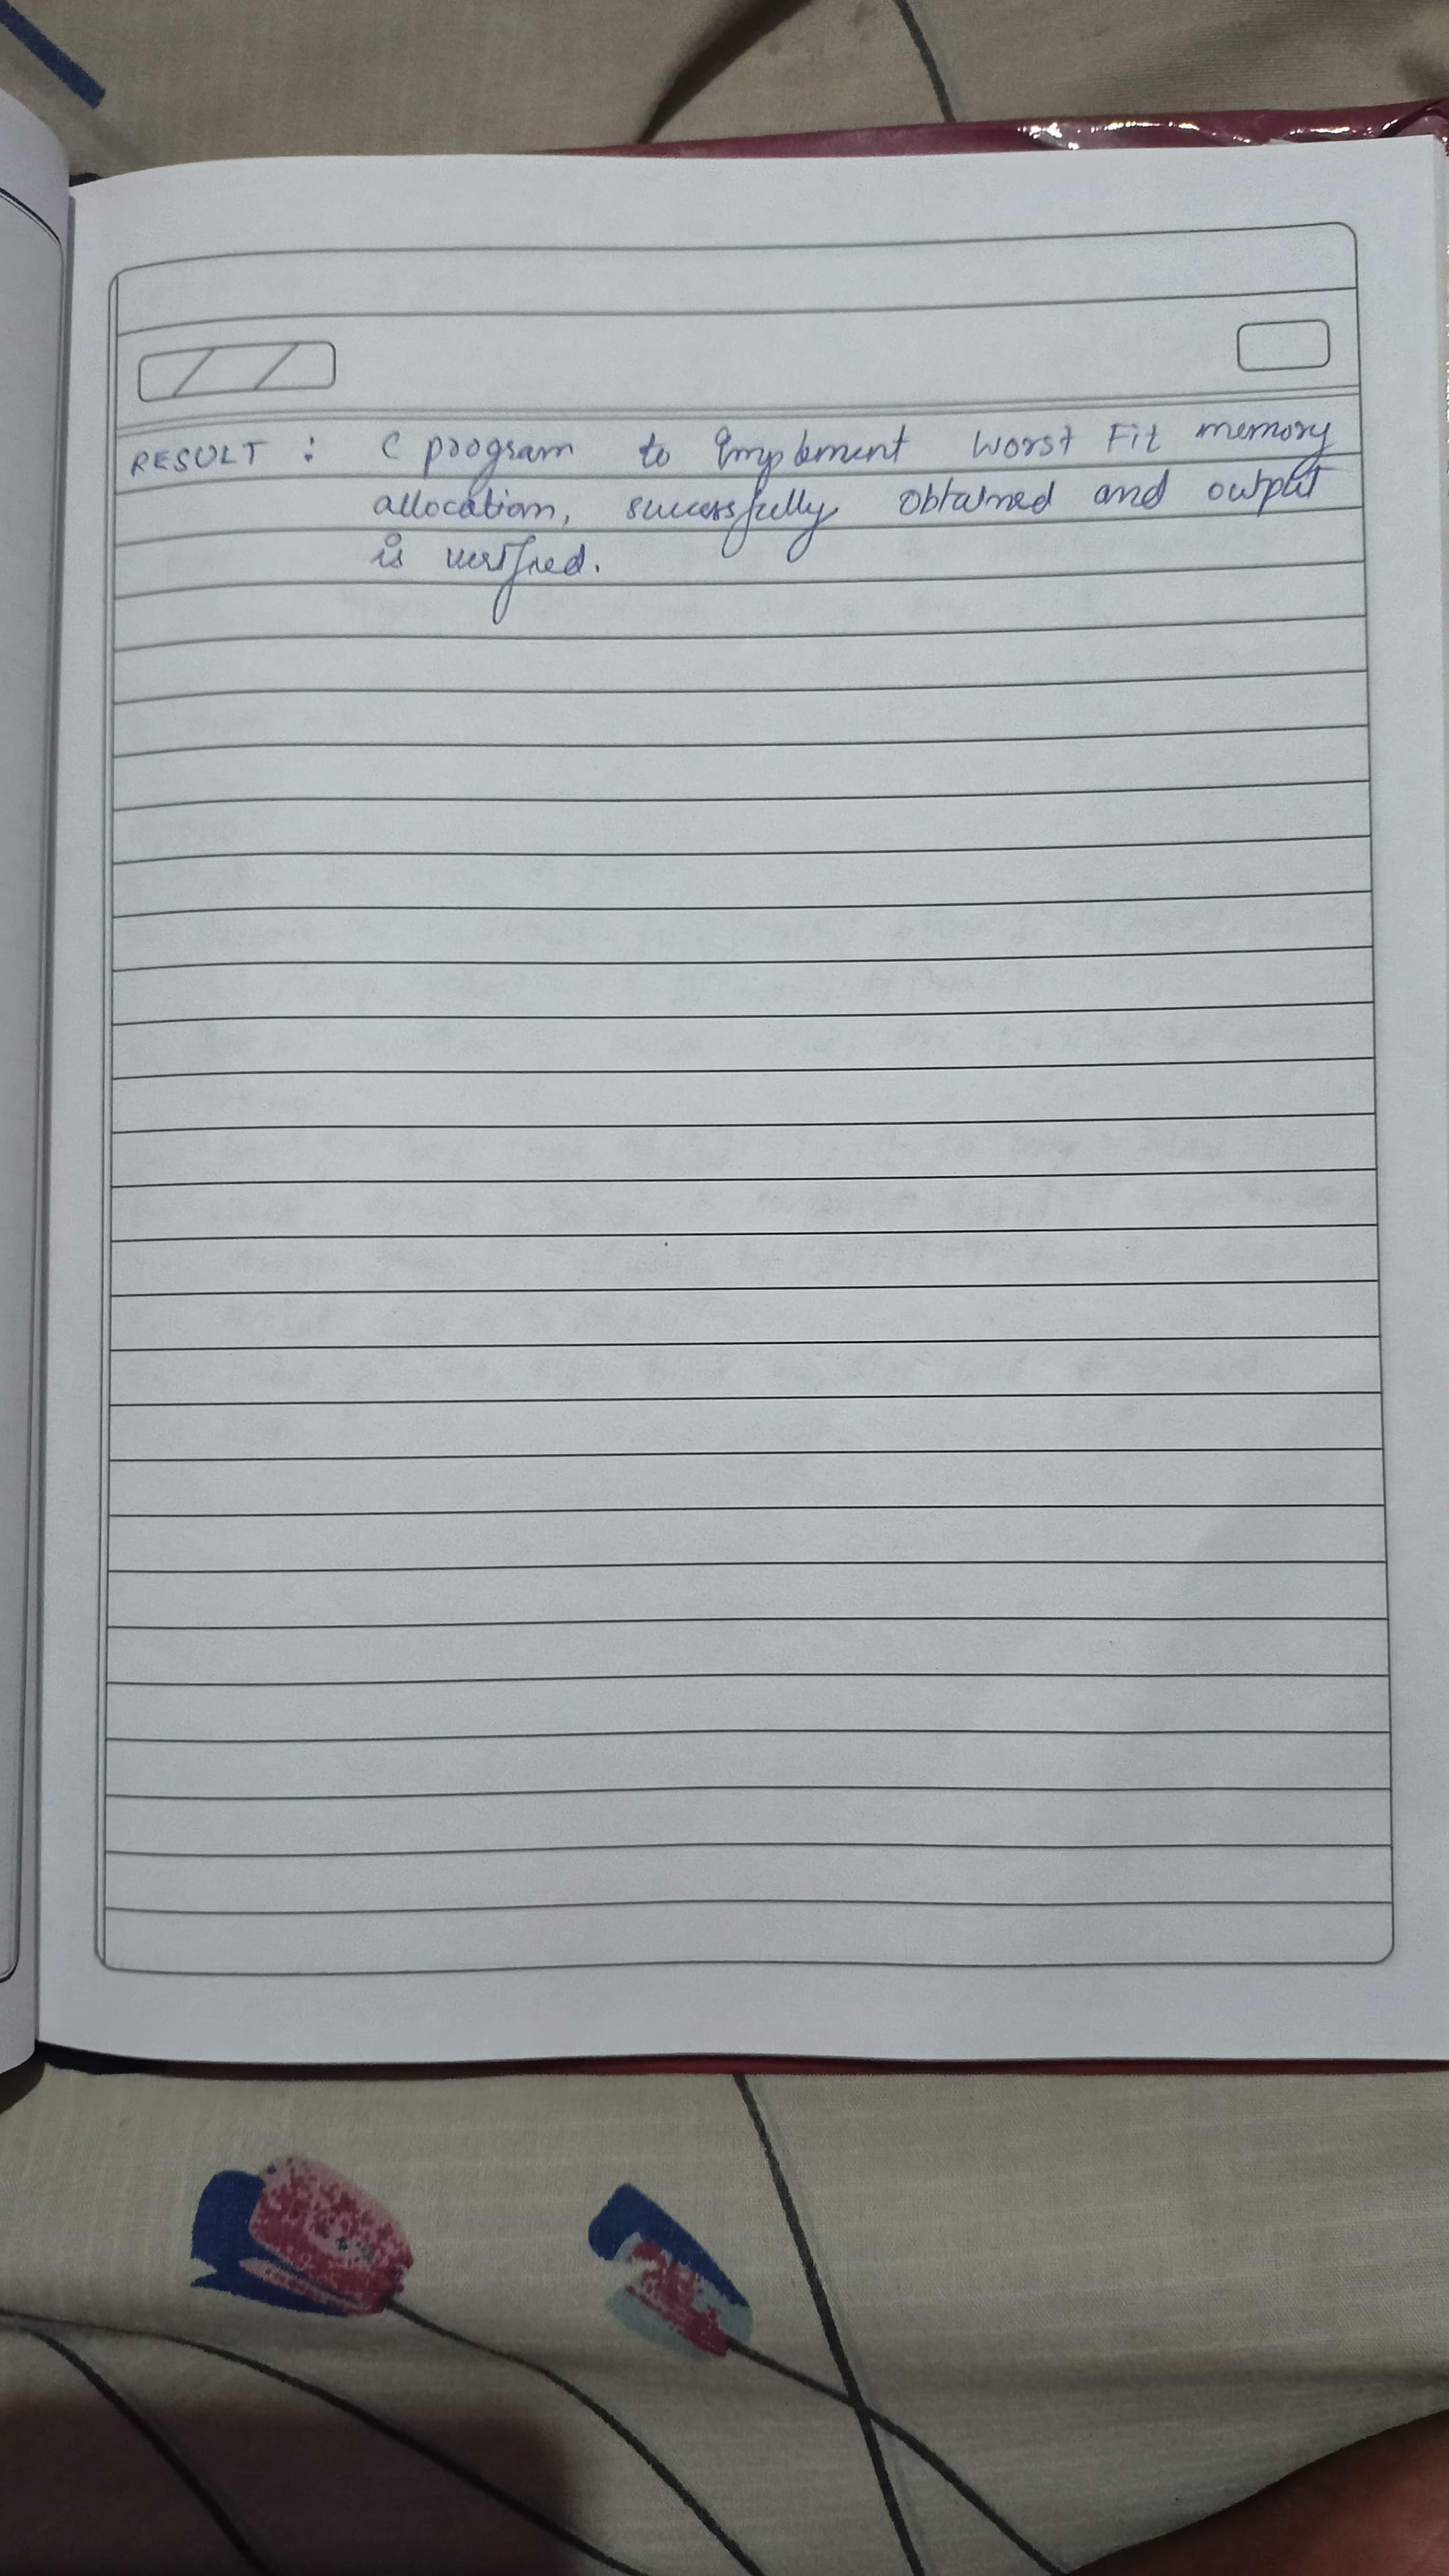 RESULT : C program to implement Worst Fit memory
allocation, successfully obtained and output
is verified.